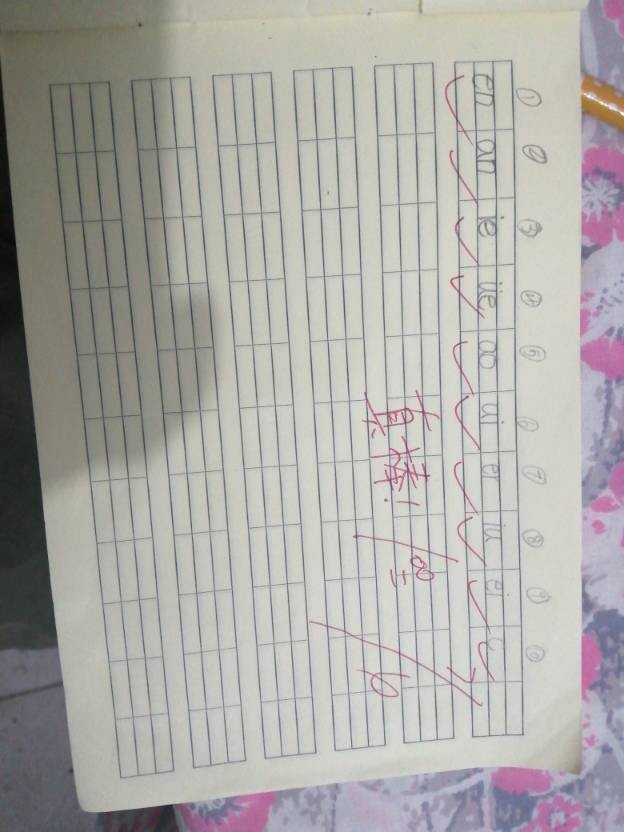 ① ② ③ ④ ⑤ ⑥ ⑦ ⑧ ⑨ ⑩
en an ie üe ao ui er iu ei
真棒！